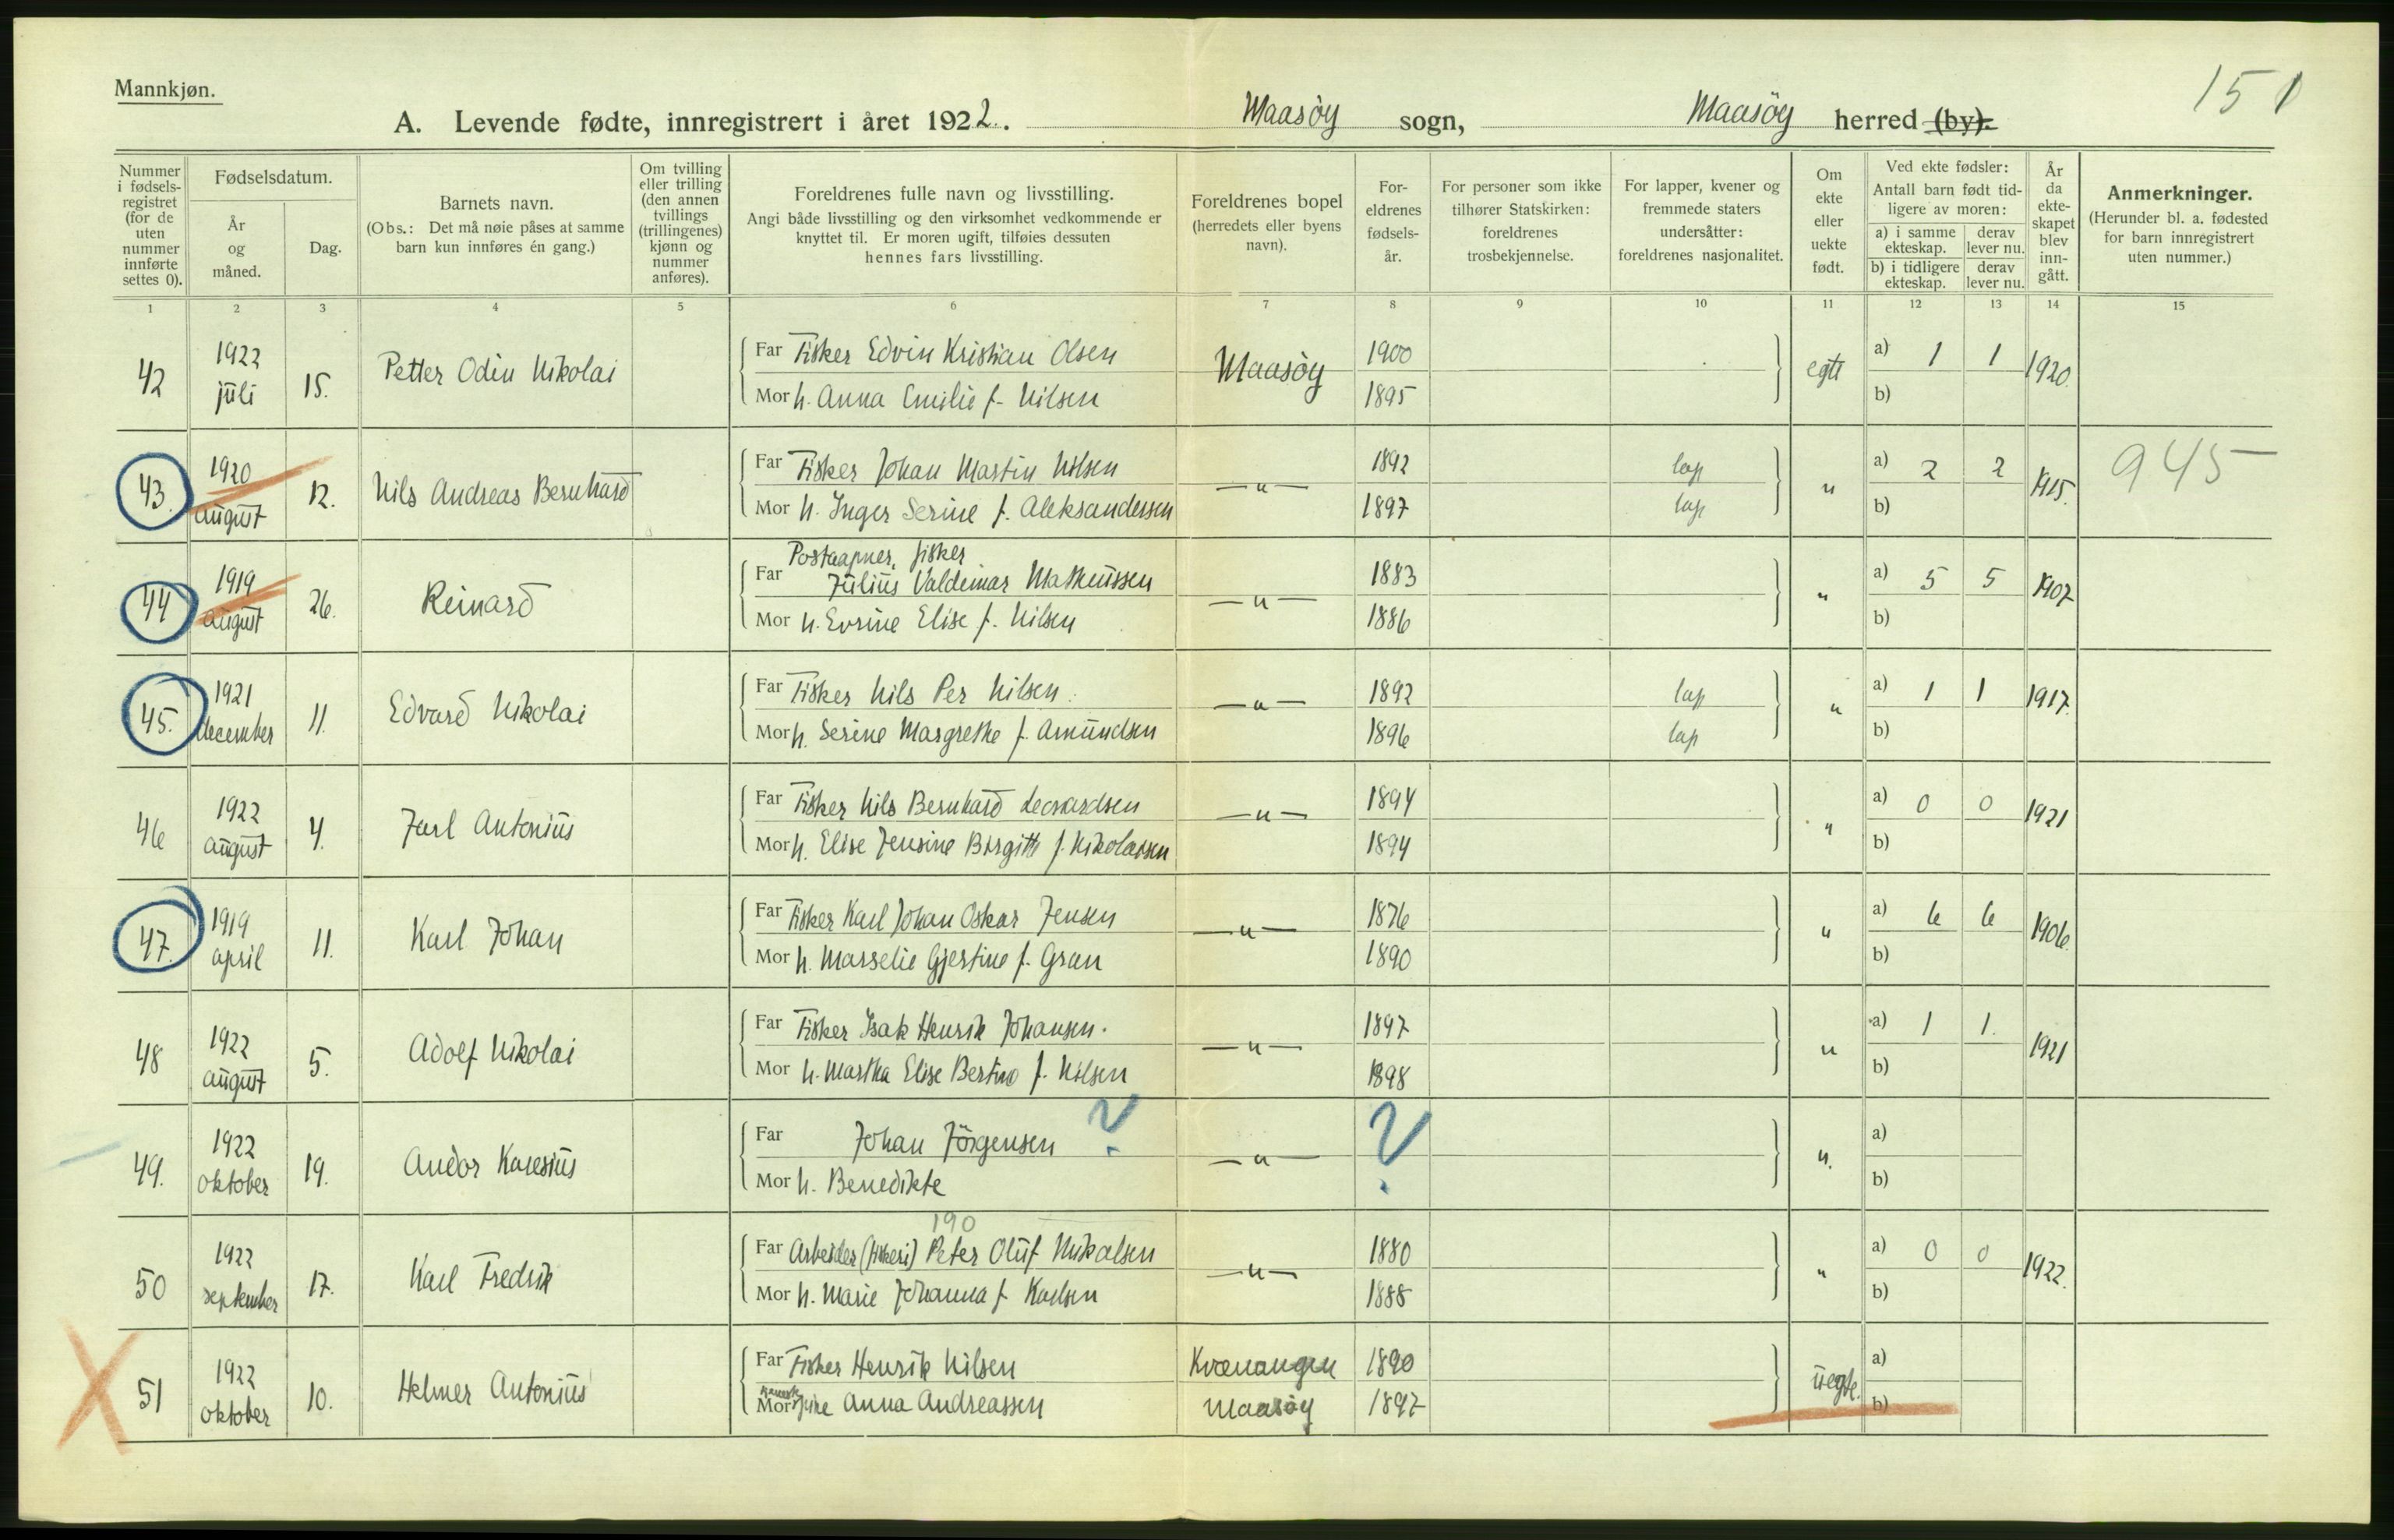 Mannkjøn.
151
A. Levende fødte, innregistrert i året 1922. Maasöy sogn, Maasöy herred (by).
Nummer i fødsels-registret (for de uten nummer innførte settes 0).
Fødselsdatum.
År og måned.
Dag.
Barnets navn.
(Obs.: Det må nøie påses at samme barn kun innføres én gang.)
Om tvilling eller trilling (den annen tvillings (trillingenes) kjønn og nummer anføres).
Foreldrenes fulle navn og livsstilling.
Angi både livsstilling og den virksomhet vedkommende er knyttet til. Er moren ugift, tilføies dessuten hennes fars livsstilling.
Foreldrenes bopel (herredets eller byens navn).
For-eldrenes fødsels-år.
For personer som ikke tilhører Statskirken: foreldrenes trosbekjennelse.
For lapper, kvener og fremmede staters undersåtter: foreldrenes nasjonalitet.
Om ekte eller uekte født.
Ved ekte fødsler:
Antall barn født tid-ligere av moren:
a) i samme ekteskap.
derav lever nu.
b) i tidligere ekteskap.
derav lever nu.
År da ekte-skapet blev inn-gått.
Anmerkninger.
(Herunder bl. a. fødested for barn innregistrert uten nummer.)
1 2 3 4 5 6 7 8 9 10 11 12 13 14 15
42 1922 juli 15. Petter Odin Nikolai
Far Fisker Edvin Kristian Olsen Maasöy 1900 egte a) 1 1 1920.
Mor h. Anna Emilie f. Nilsen 1895 b)
43. 1920 august 12. Nils Andreas Bernhard
Far Fisker Johan Martin Nilsen —„— 1892 lap „ a) 2 2 1915. 945
Mor h. Inger Serine f. Aleksandersen 1897 lap b)
44 1919 august 26. Reinard
Postaapner, fisker
Far Julius Valdemar Matheussen —„— 1883 „ a) 5 5 1907
Mor h. Evrine Elise f. Nilsen 1886 b)
45. 1921 december 11. Edvard Nikolai
Far Fisker Nils Per Nilsen. —„— 1892 lap „ a) 1 1 1917.
Mor h. Serine Margrethe f. Amundsen 1896 lap b)
46 1922 august 4. Jarl Antonius
Far Fisker Nils Bernhard Leonardsen —„— 1894 „ a) 0 0 1921
Mor h. Elise Jensine Birgitte f. Nikolaisen 1894 b)
47. 1919 april 11. Karl Johan
Far Fisker Karl Johan Oskar Jensen —„— 1876 „ a) 6 6 1906.
Mor h. Marselie Gjertine f. Gran 1890 b)
48 1922 august 5. Adolf Nikolai
Far Fisker Isak Henrik Johansen. —„— 1897 „ a) 1 1. 1921
Mor h. Martha Elise f. Nilsen 1898 b)
49. 1922 oktober 19. Andor
Far Johan Jörgensen ? —„— ? „. a)
Mor h. Benedikte b)
190
50 1922 september 17. Karl Fredrik
Far Arbeider (fiskeri) Peter Oluf Nikolaisen —„— 1880 „ a) 0 0 1922.
Mor h. Marie Johanna f. Karlsen 1888 b)
51 1922 oktober 10. Helmer Antonius
Far Fisker Henrik Nilsen Kvænangen 1890 uegte. a)
Mor Anna Andreassen Maasöy 1897 b)